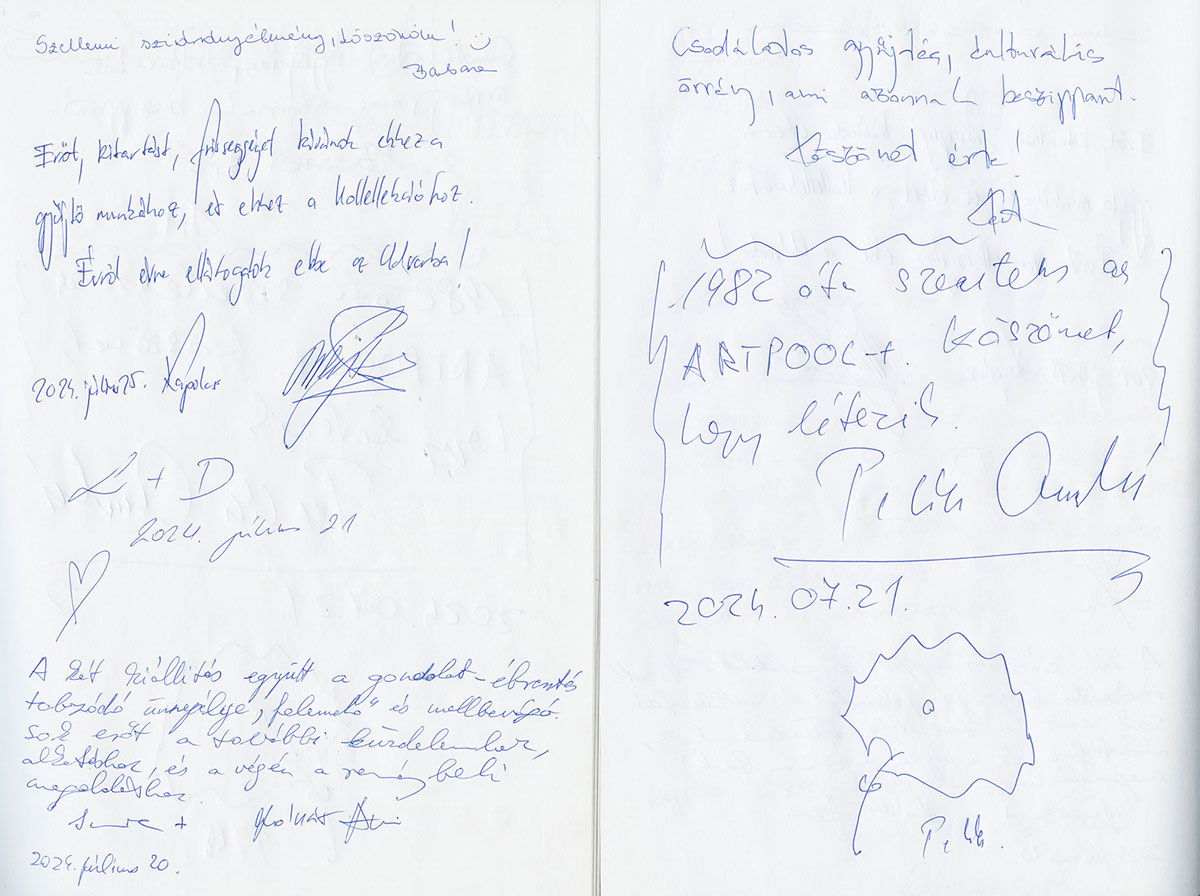 Szellemi szivárványélmény, köszönöm! :)
Barbara
Erőt, kitartást, frissességet kívánok ehhez a
gyűjtő munkához, és ehhez a kollekcióhoz.
Évről évre ellátogatok ebbe az Udvarba!
2024. július 25. Kapolcs
L + D
2024. július 21
A két kiállítás együtt a gondolat-ébresztés
tobzódó ünnepélye, „felemelő" és mellbevágó.
Sok erőt a további küzdelemhez,
alkotáshoz, és a végén a reménybeli
megoldáshoz.
+ Molnár
2024. július 20.
Csodálatos gyűjtés, kulturális
örvény, ami azonnal beszippant.
Köszönet érte!
Kati
1982 óta szeretem az
ARTPOOL-t. Köszönet,
hogy létezik.
Petik András
2024. 07.21.
Petik.